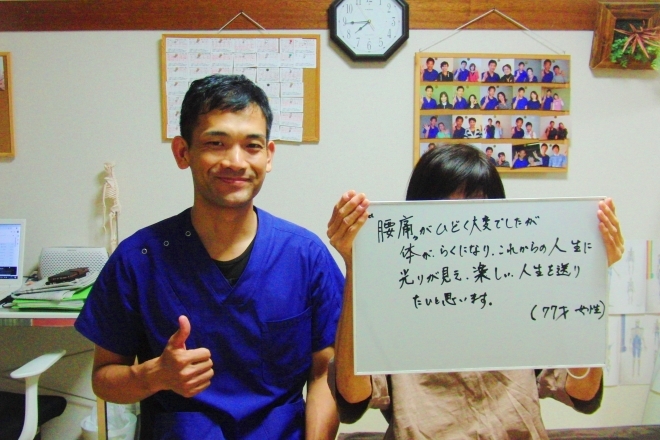 "腰痛"がひどく大変でしたが
体が、らくになり、これからの人生に
光りが見え、楽しい、人生を送り
たいと思います。
(77才 女性)